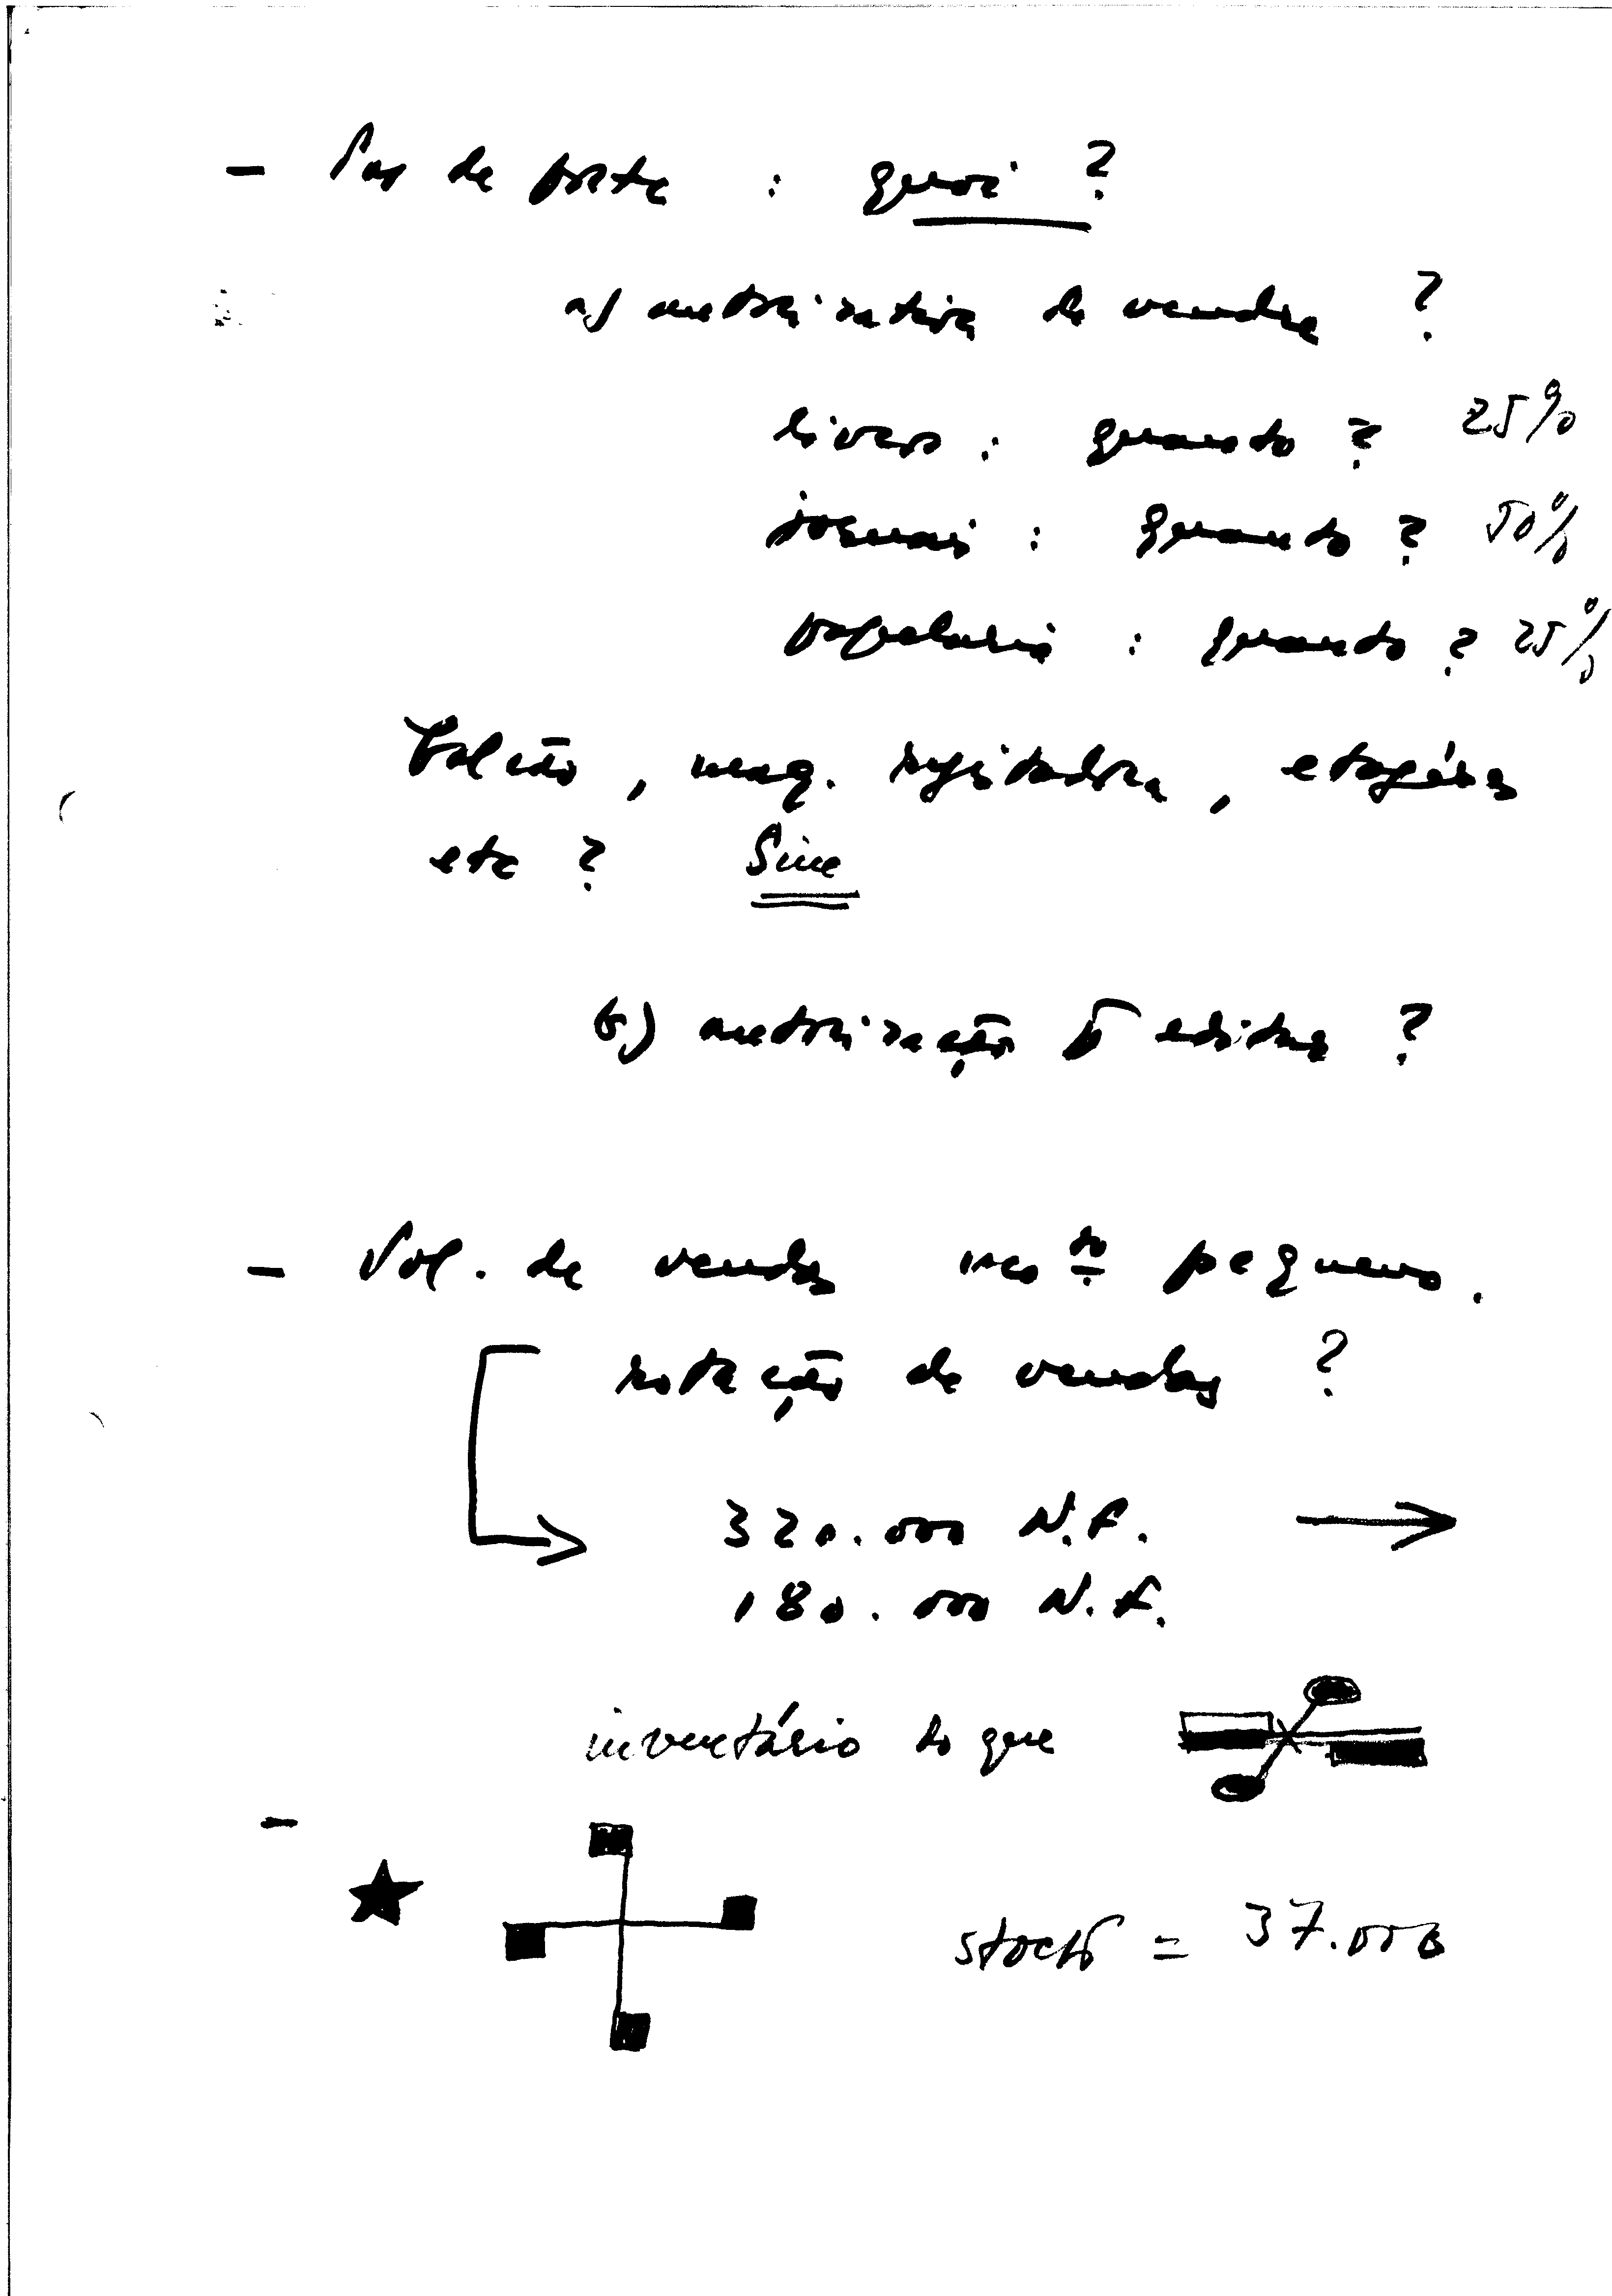 - Pas de porte : quoi ?
a) autorisation de vendre ?
livros : quando ? 25%
jornais : quando ? 50%
papelaria : quando ? 25%
Balcão, maq. registadora, etagères
etc ? Sim
b) autorização p editar ?
- Vol. de vendas mto pequeno.
rotação de vendas ?
320.000 N.F.
180.000 N.F.
inventário do que
-
stock = 37.000